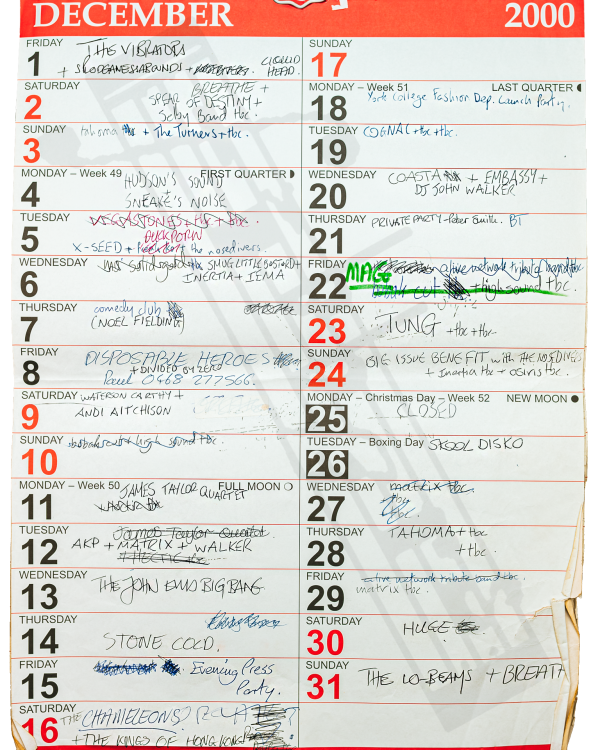 DECEMBER 2000
FRIDAY
1 THE VIBRATORS
+
HEAD.
SATURDAY
2 BREATHE +
SPEAR OF DESTINY +
Selby Band tbc.
SUNDAY
3 tahoma + The Turners + tbc
MONDAY – Week 49 FIRST QUARTER
4 HUDSON'S SOUND
+
SNEAKE'S NOISE
TUESDAY
5
DUCK PORN
X-SEED + the nosedivers.
WEDNESDAY
6 SMUG LITTLE BASTARD +
INERTIA + IEMA
THURSDAY
7 comedy club
(NOEL FIELDING)
FRIDAY
8 DISPOSABLE HEROES
+ DIVIDED BY ZERO
Paul 0468 277566.
SATURDAY
9 WATERSON CARTHY +
ANDI AITCHISON
SUNDAY
10 high sound tbc.
MONDAY – Week 50 FULL MOON
11 JAMES TAYLOR QUARTET
TUESDAY
12 James Taylor Quartet
AKP + MATRIX + WALKER
WEDNESDAY
13 THE JOHN BIG BANG
THURSDAY
14
STONE COLD.
FRIDAY
15 Evening Press
Party.
SATURDAY
16 THE CHAMELEONS
+ THE KINGS OF HONG KONG
SUNDAY
17
MONDAY – Week 51 LAST QUARTER
18 York College Fashion Dep. Launch Party.
TUESDAY
19 COGNAC + tbc + tbc.
WEDNESDAY
20 COASTA + EMBASSY +
DJ JOHN WALKER
THURSDAY
21 PRIVATE PARTY - Peter Smith. BT
FRIDAY
22 MAGG alive network tribute band tbc
+ high sound tbc.
SATURDAY
23 TUNG + tbc + tbc
SUNDAY
24 BIG ISSUE BENEFIT with THE NOSEDIVERS
+ Inertia tbc + osiris tbc.
MONDAY – Christmas Day – Week 52 NEW MOON
25 CLOSED
TUESDAY – Boxing Day
26 SKOOL DISKO
WEDNESDAY
27 matrix tbc.
tbc
tbc.
THURSDAY
28 TAHOMA + tbc
+ tbc
FRIDAY
29 alive network tribute band tbc.
matrix tbc.
SATURDAY
30 HUGE
SUNDAY
31 THE LO-BEAMS + BREATH